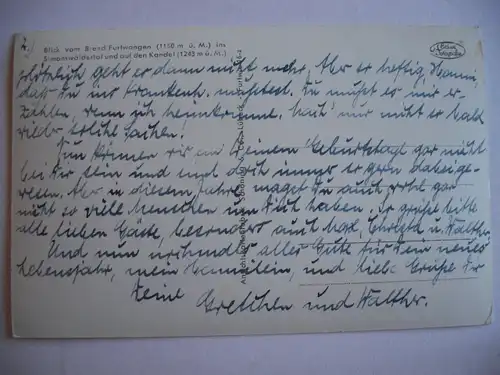 2.) Blick vom Brend Furtwangen (1150 m ü. M.) ins
Simonswäldertal und auf den Kandel (1243 m ü. M.)
plötzlich geht es dann nicht mehr. Aber so heftig Hanni,
daß Du ins Krankenh. mußtest. Du mußt es mir er-
zählen, wenn ich heimkomme. Mach' nur nicht so bald
wieder solche Sachen!
Nun können wir an Deinem Geburtstage gar nicht
bei Dir sein und sind doch immer so gern dabeige-
wesen. Aber in diesem Jahre magst Du auch wohl gar
nicht so viele Menschen um Dich haben. So grüße bitte
alle lieben Gäste, besonders auch Max, Christa u. Walther.
Und nun nochmals alles Gute für Dein neues
Lebensjahr, mein Hannilein, und liebe Grüße Dir
Deine
Gretchen und Walther.